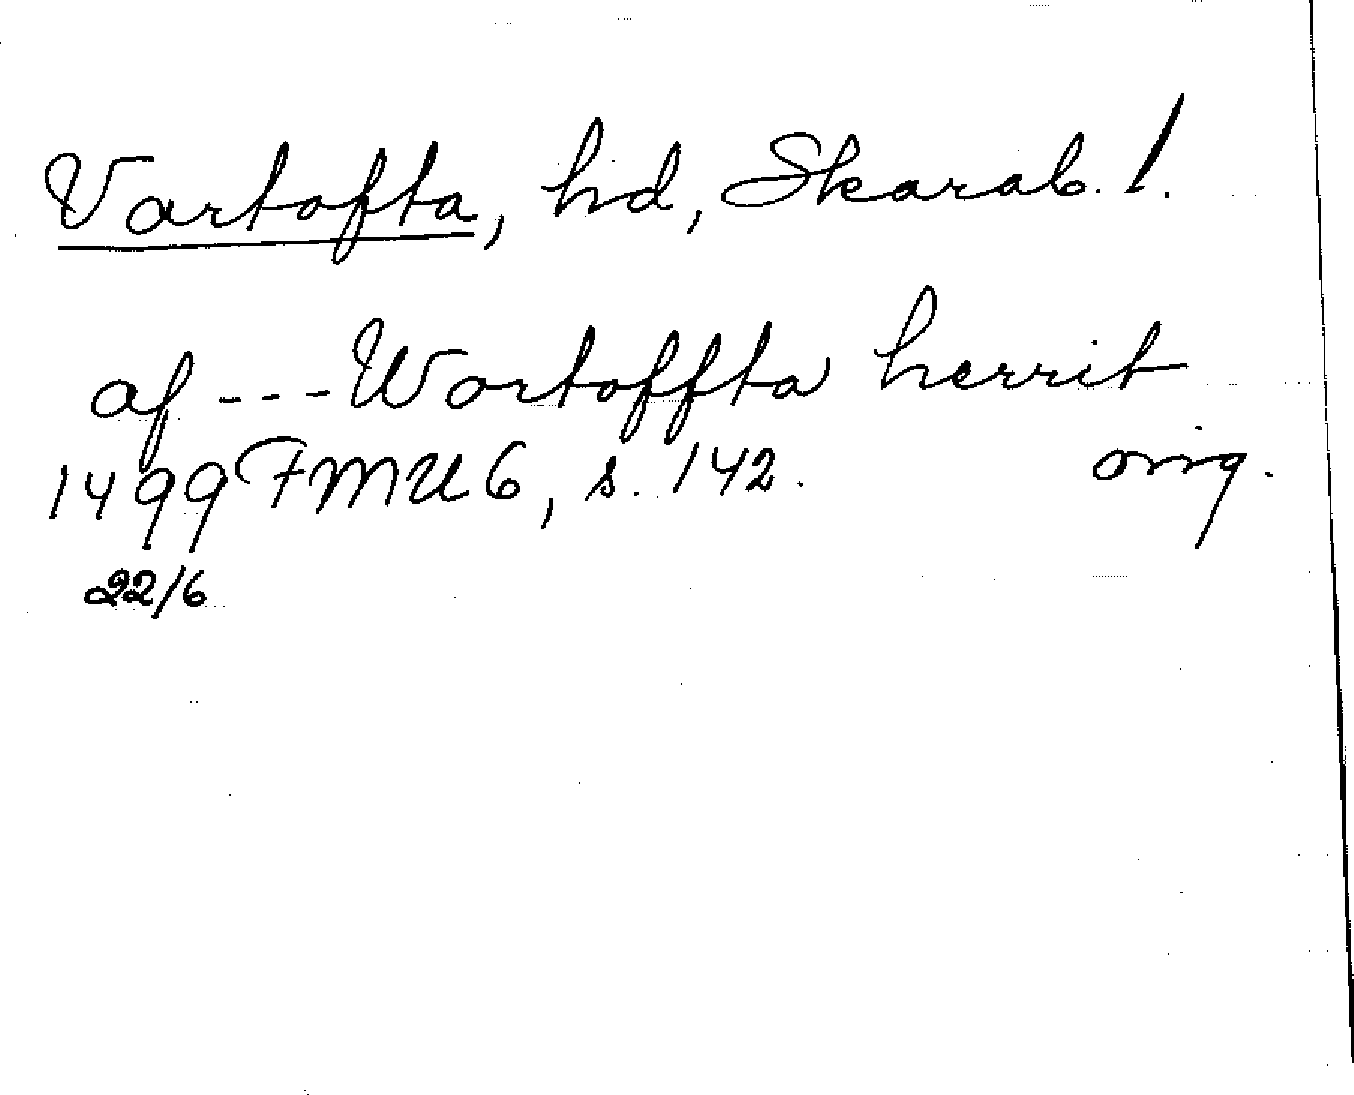 Vartofta, hd, Skarab. l.
af --- Wortoffta herrit
1499 FMU 6, s. 142. orig.
22/6